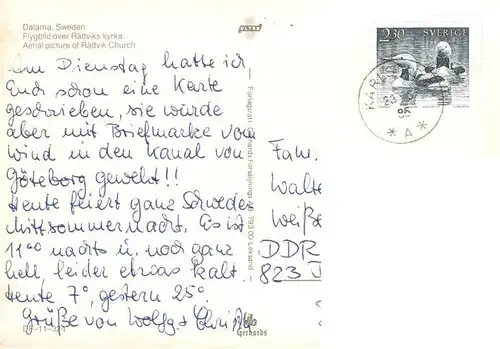 Dalarna, Sweden.
Flygbild över Rättviks kyrka.
Aerial picture of Rättvik Church
Am Dienstag hatte ich
Euch schon eine Karte
geschrieben, sie wurde
aber mit Briefmarke vom
Wind in den Kanal von
Göteborg geweht!!
Heute feiert ganz Schweden
Mittsommernacht. Es ist
11⁰⁰ nachts u. noch ganz
hell, leider etwas kalt.
Heute 7°, gestern 25°.
Grüße von Wolfg. +
Gerhards
793 00 Leksand
2.30 SVERIGE
* A *
Fam.
Walte
Weiße
DDR
823